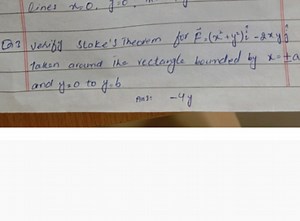 lines x=0, y=0,
Q3 verify Stoke's Theorem for F⃗=(x²+y²)î -2xyĵ
taken around the rectangle bounded by x=±a
and y=0 to y=b
Ans: -4y